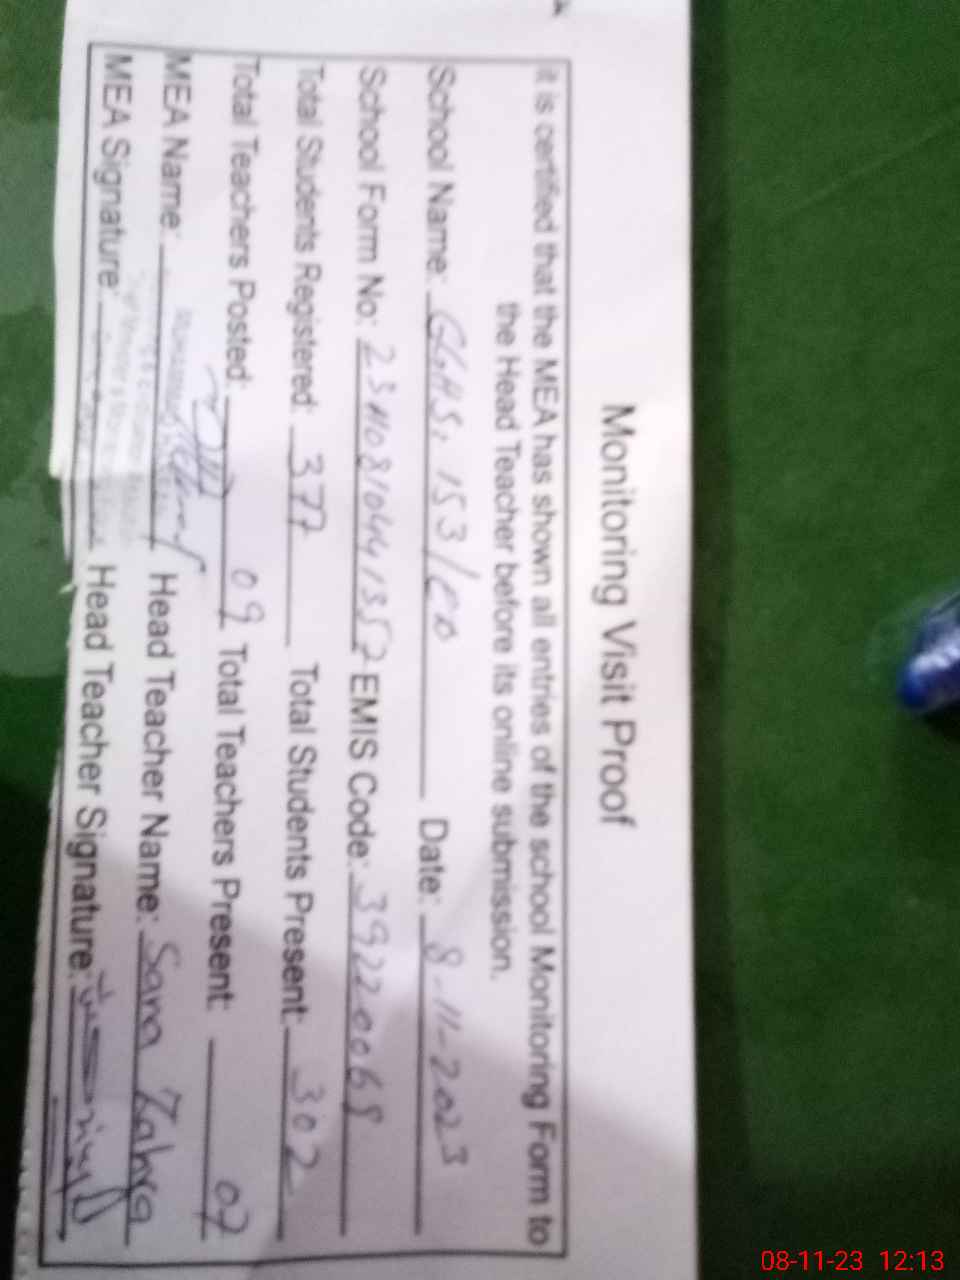 Monitoring Visit Proof
it is certified that the MEA has shown all entries of the school Monitoring Form to
the Head Teacher before its online submission.
School Name: GGHS, 153/ Date: 8-11-2023
School Form No: EMIS Code: 39220068
Total Students Registered: 377 Total Students Present: 302
Total Teachers Posted: 09 Total Teachers Present: 07
MEA Name: Head Teacher Name: Sara Zahra
MEA Signature: Head Teacher Signature:
08-11-23 12:13